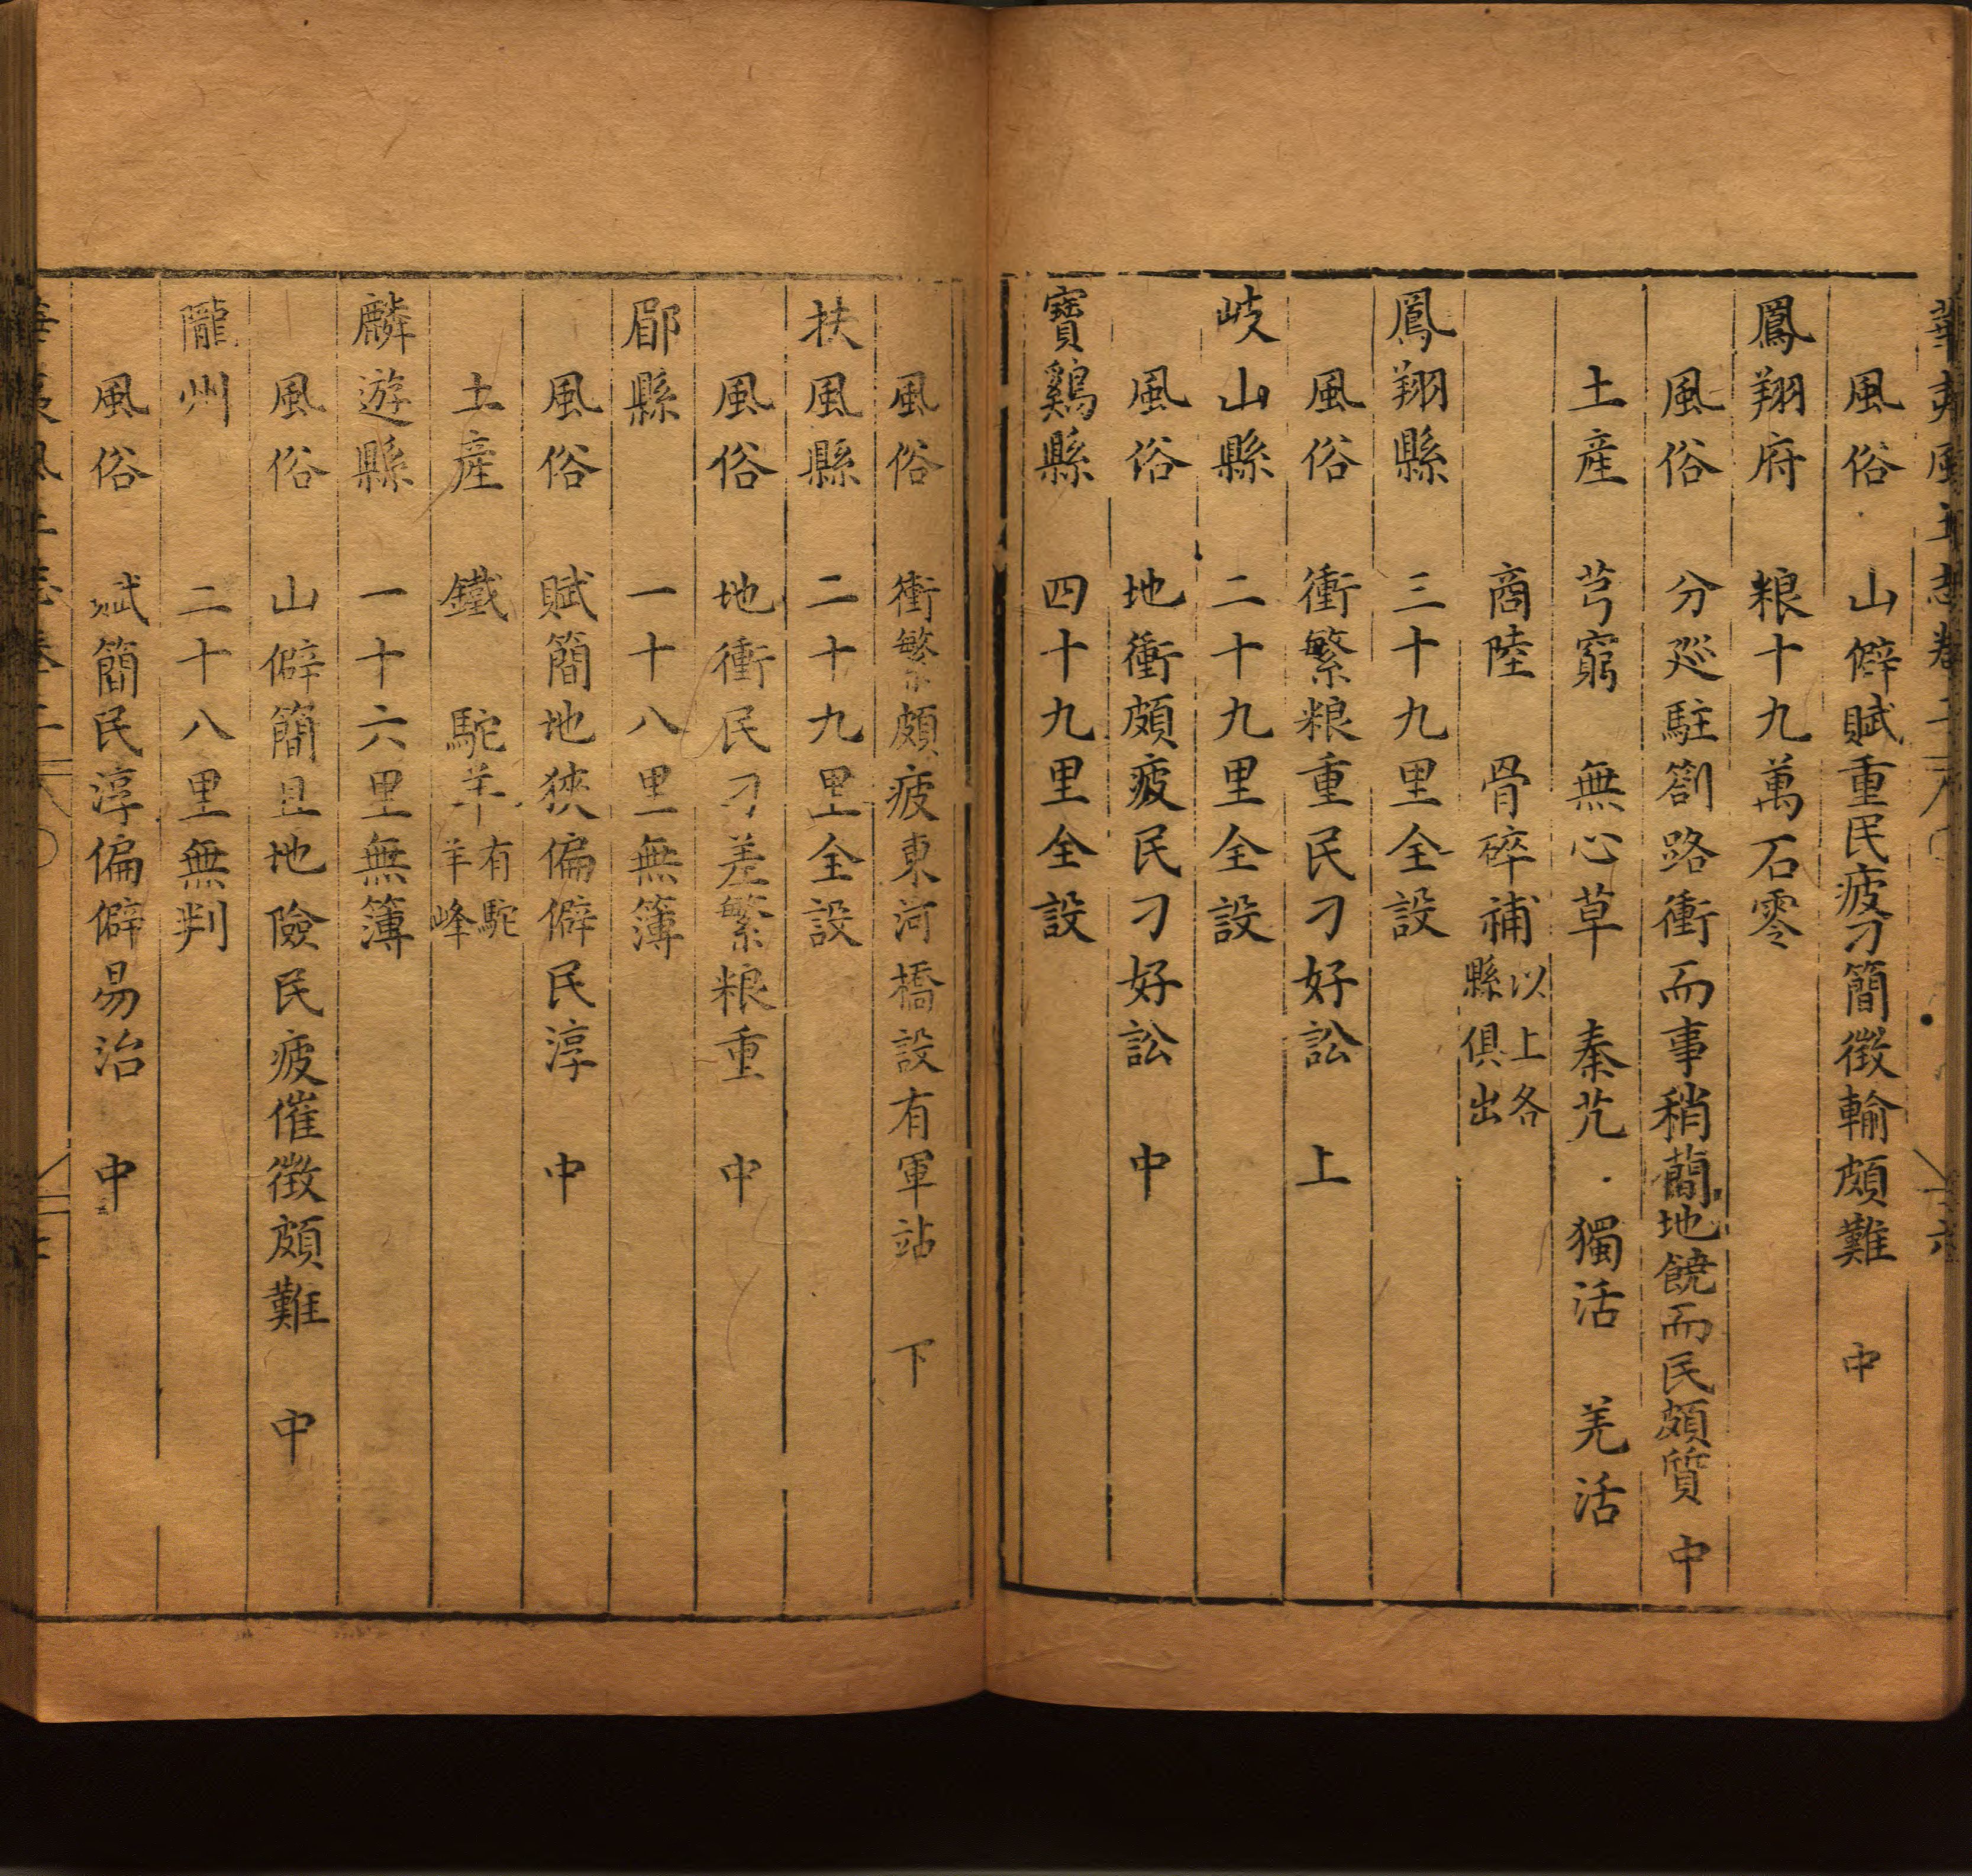 華夷風土志卷二
六
風俗 山僻賦重民疲刁簡徵輸頗難 中
鳳翔府 粮十九萬石零
風俗 分廵駐劄路衝而事稍蕳地饒而民頗質 中
土産 芎窮 無心草 秦艽 獨活 羌活
商陸 骨碎補 以上各縣俱出
鳳翔縣 三十九里全設
風俗 衝繁粮重民刁好訟 上
岐山縣 二十九里全設
風俗 地衝頗疲民刁好訟 中
寶鷄縣 四十九里全設
風俗 衝繁頗疲東河橋設有軍站 下
扶風縣 二十九里全設
風俗 地衝民刁差繁粮重 中
郿縣 一十八里無簿
風俗 賦簡地狹偏僻民淳 中
土産 鐵 駝羊 有駝羊峰
麟遊縣 一十六里無簿
風俗 山僻簡且地險民疲催徴頗難 中
隴州 二十八里無判
風俗 賦簡民淳偏僻易治 中